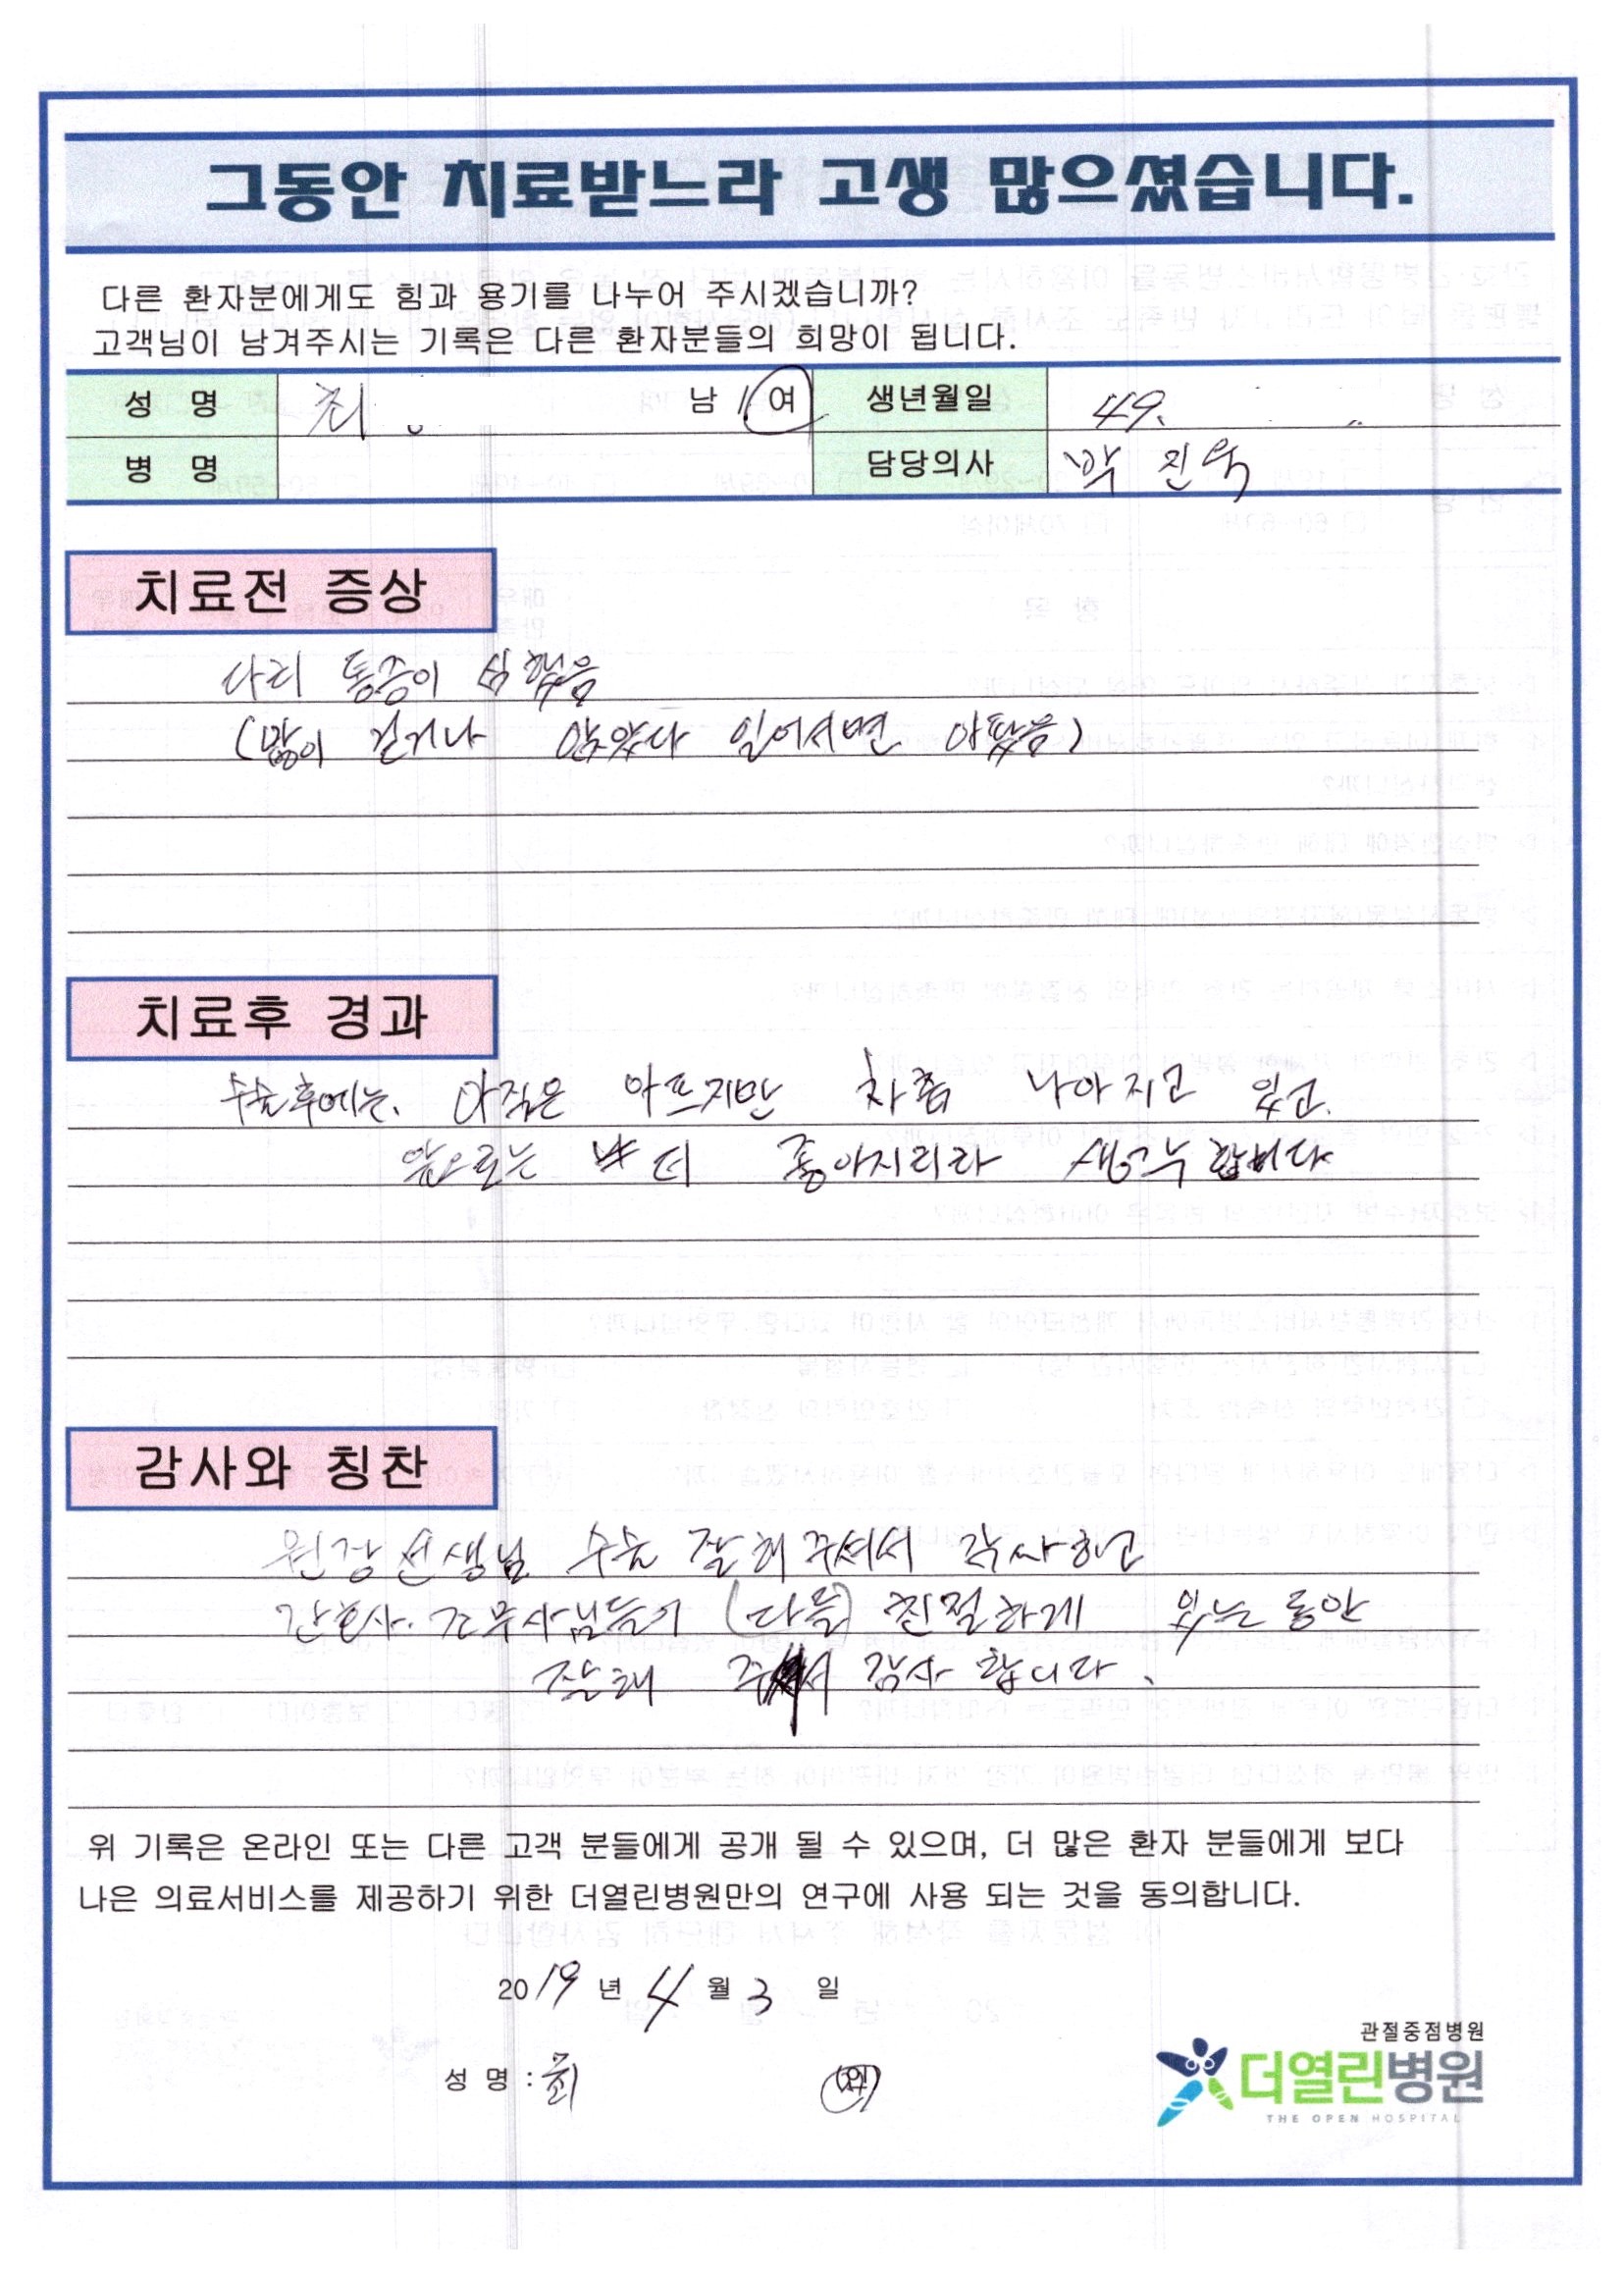 그동안 치료받느라 고생 많으셨습니다.
다른 환자분에게도 힘과 용기를 나누어 주시겠습니까?
고객님이 남겨주시는 기록은 다른 환자분들의 희망이 됩니다.
성 명 최 남 / 여 생년월일 49.
병 명 담당의사 박진욱
치료전 증상
다리 통증이 심했음
(많이 걷거나 앉았다 일어서면 아팠음)
치료후 경과
수술후에는. 아직은 아프지만 차츰 나아지고 있고.
앞으로는 더 좋아지리라 생각합니다
감사와 칭찬
원장선생님 수술 잘해주셔서 감사하고
간호사. 간무사님들이 (다들) 친절하게 있는동안
잘해 주셔서 감사합니다.
위 기록은 온라인 또는 다른 고객 분들에게 공개 될 수 있으며, 더 많은 환자 분들에게 보다
나은 의료서비스를 제공하기 위한 더열린병원만의 연구에 사용 되는 것을 동의합니다.
2019 년 4 월 3 일
성 명 : 최
관절중점병원
더열린병원
THE OPEN HOSPITAL